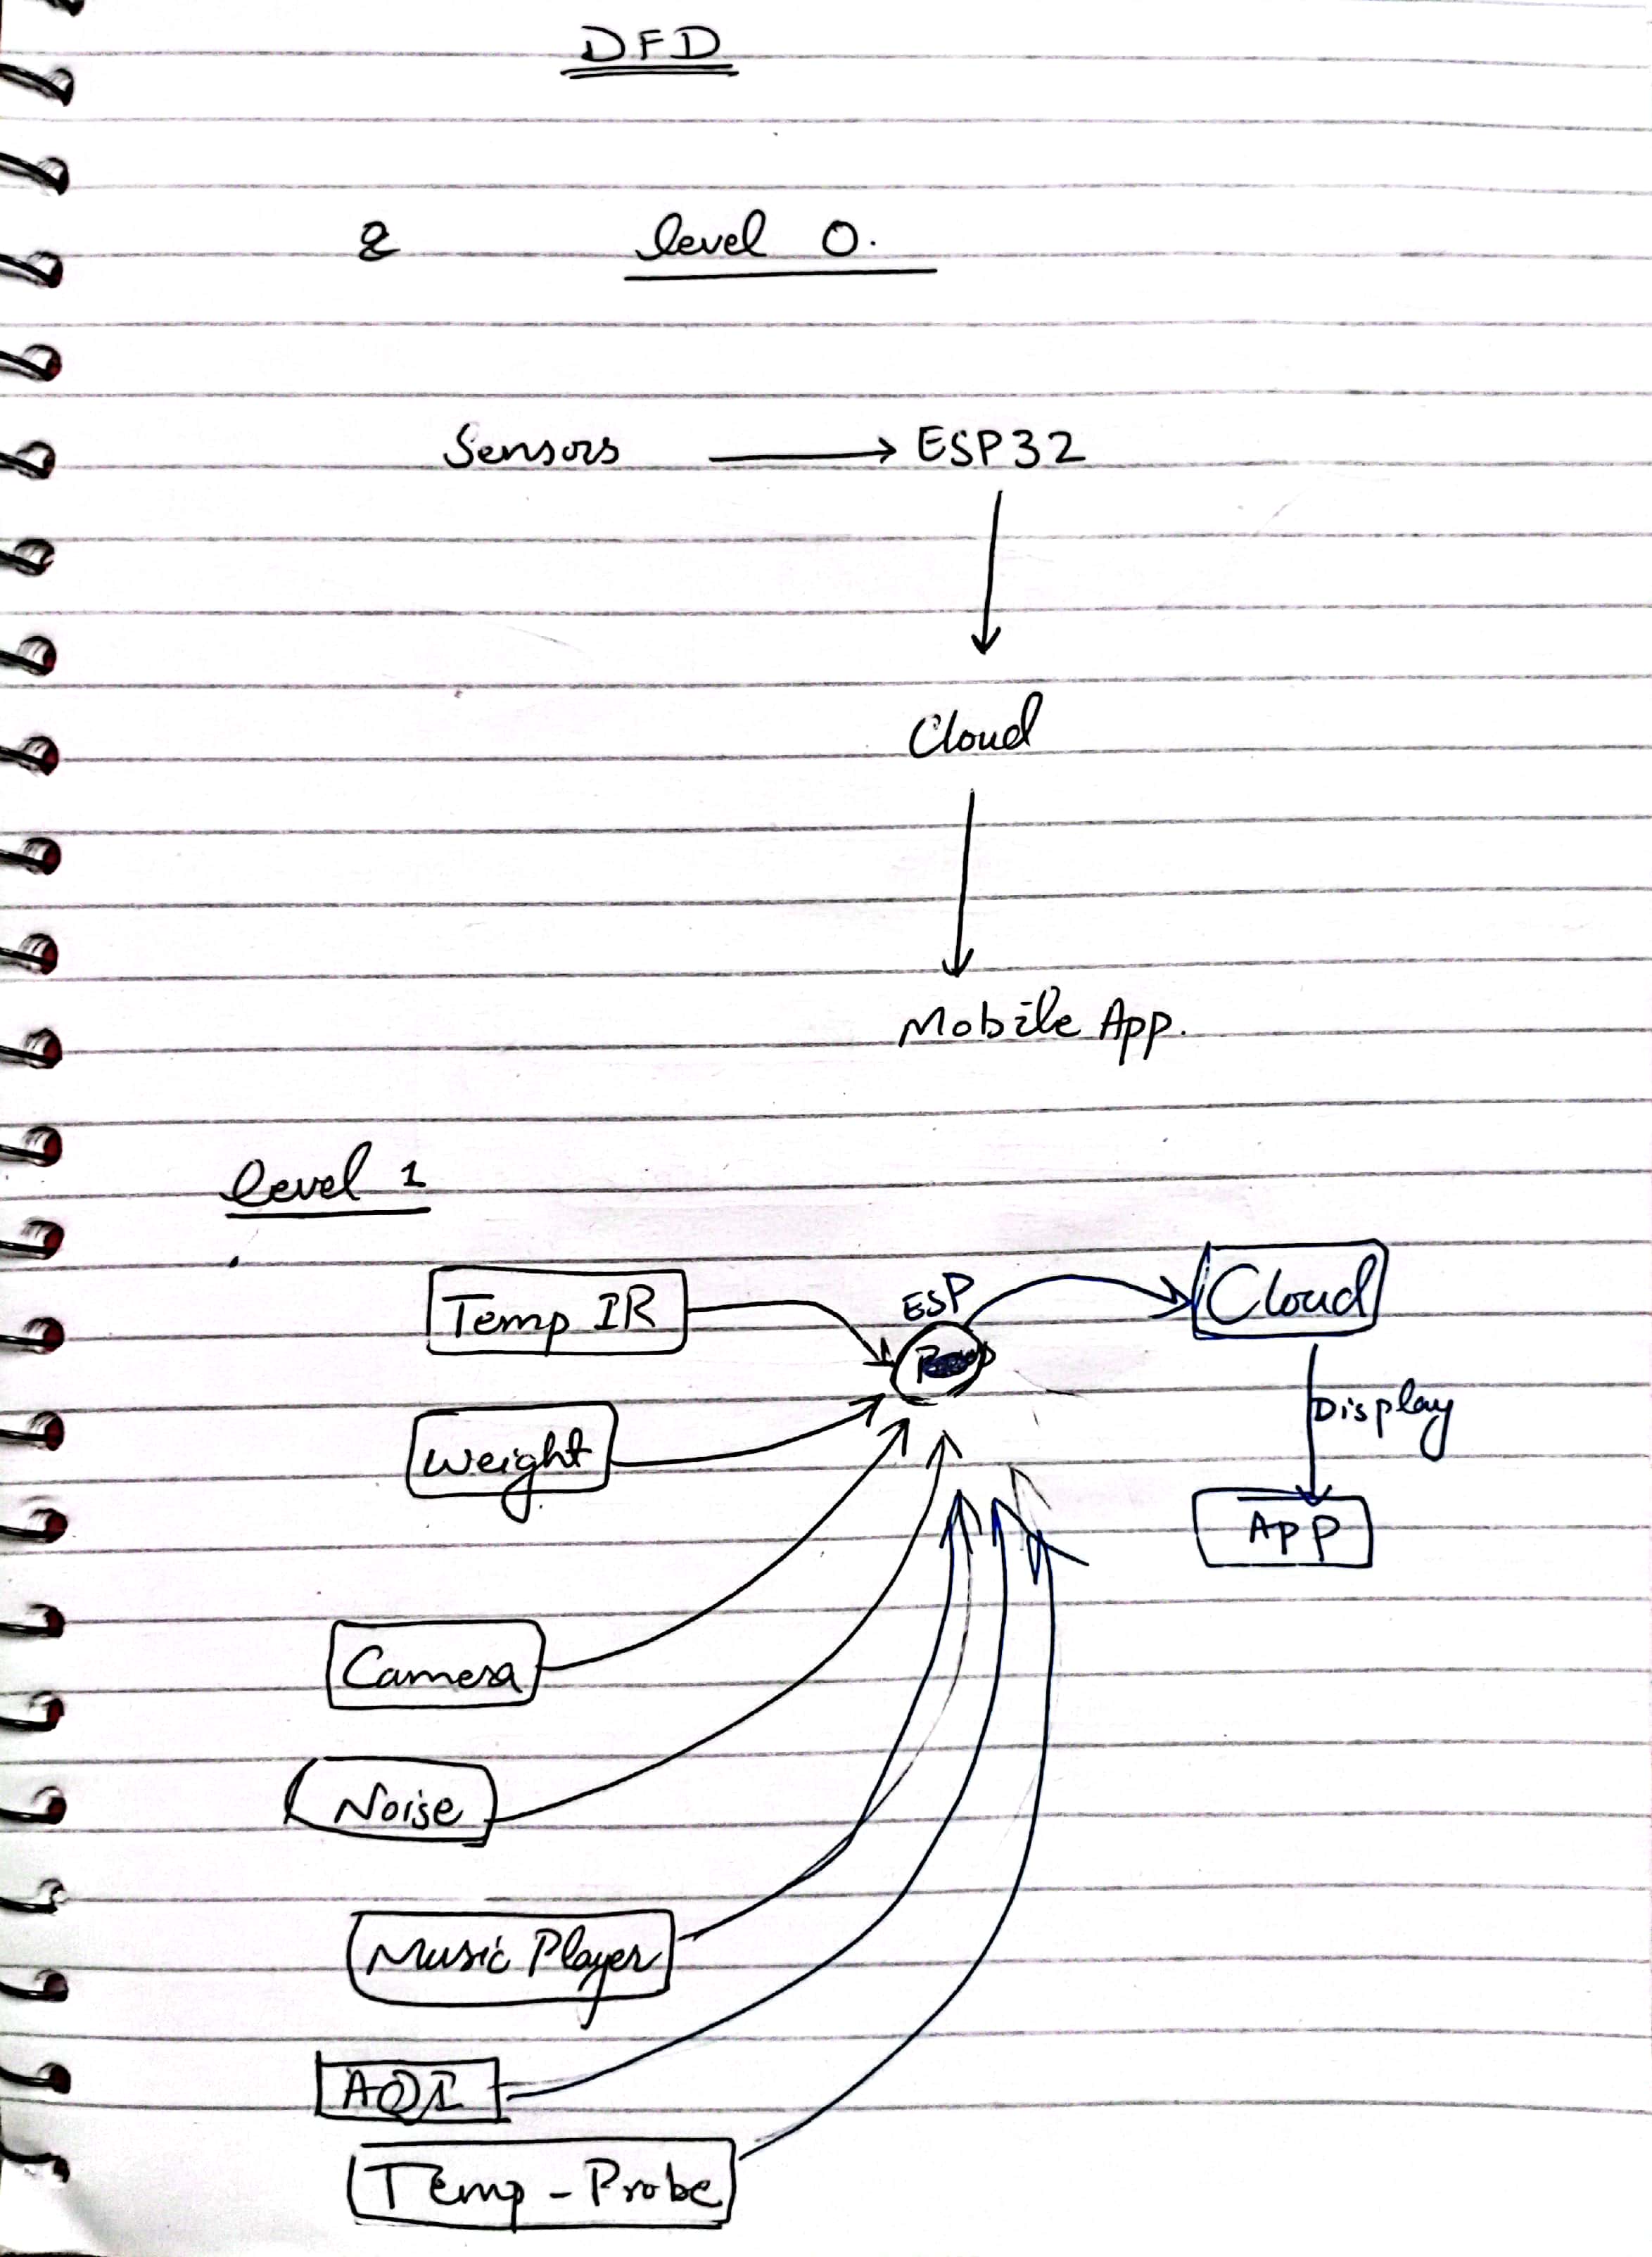 DFD
level 0.
Sensors ESP32
Cloud
Mobile App.
level 1
Temp IR
ESP
Cloud
Weight
Display
App
Camera
Noise
Music Player
AQI
Temp - Probe